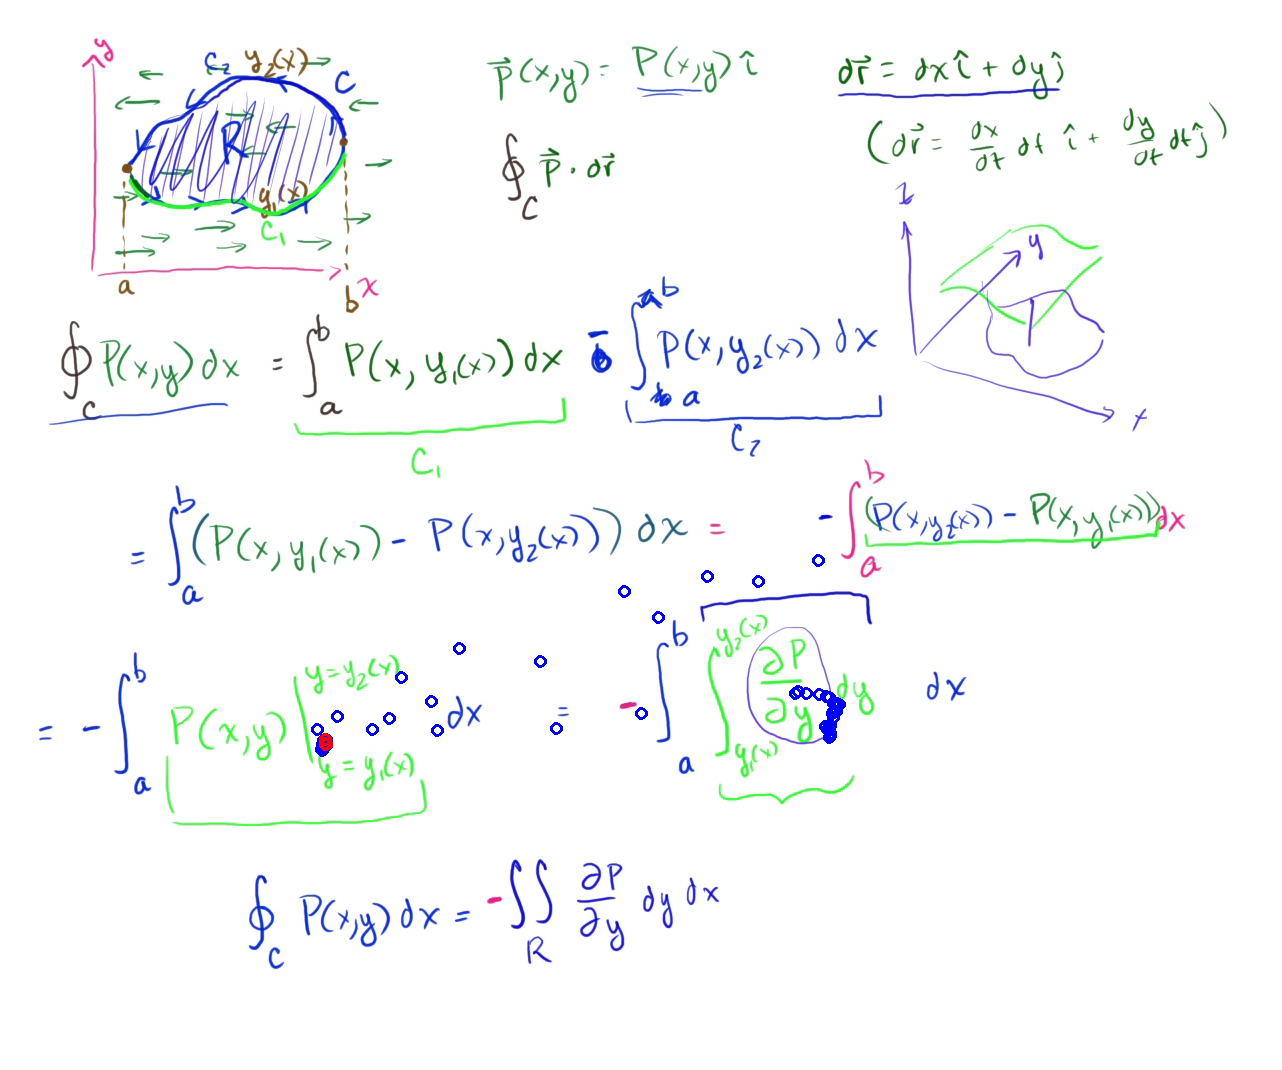 y C₂ y₂(x) C
R
y₁(x)
C₁
a b x
P⃗(x,y) = P(x,y) î
∮_C P⃗ · dr⃗
dr⃗ = dx î + dy ĵ
(dr⃗ = dx/dt dt î + dy/dt dt ĵ)
z y x
∮_C P(x,y) dx = ∫_a^b P(x, y₁(x)) dx - ∫_a^b P(x, y₂(x)) dx
C₁ C₂
= ∫_a^b (P(x, y₁(x)) - P(x, y₂(x))) dx = - ∫_a^b (P(x, y₂(x)) - P(x, y₁(x))) dx
= - ∫_a^b P(x,y) |_{y = y₁(x)}^{y = y₂(x)} dx = - ∫_a^b ∫_{y₁(x)}^{y₂(x)} ∂P/∂y dy dx
∮_C P(x,y) dx = - ∬_R ∂P/∂y dy dx